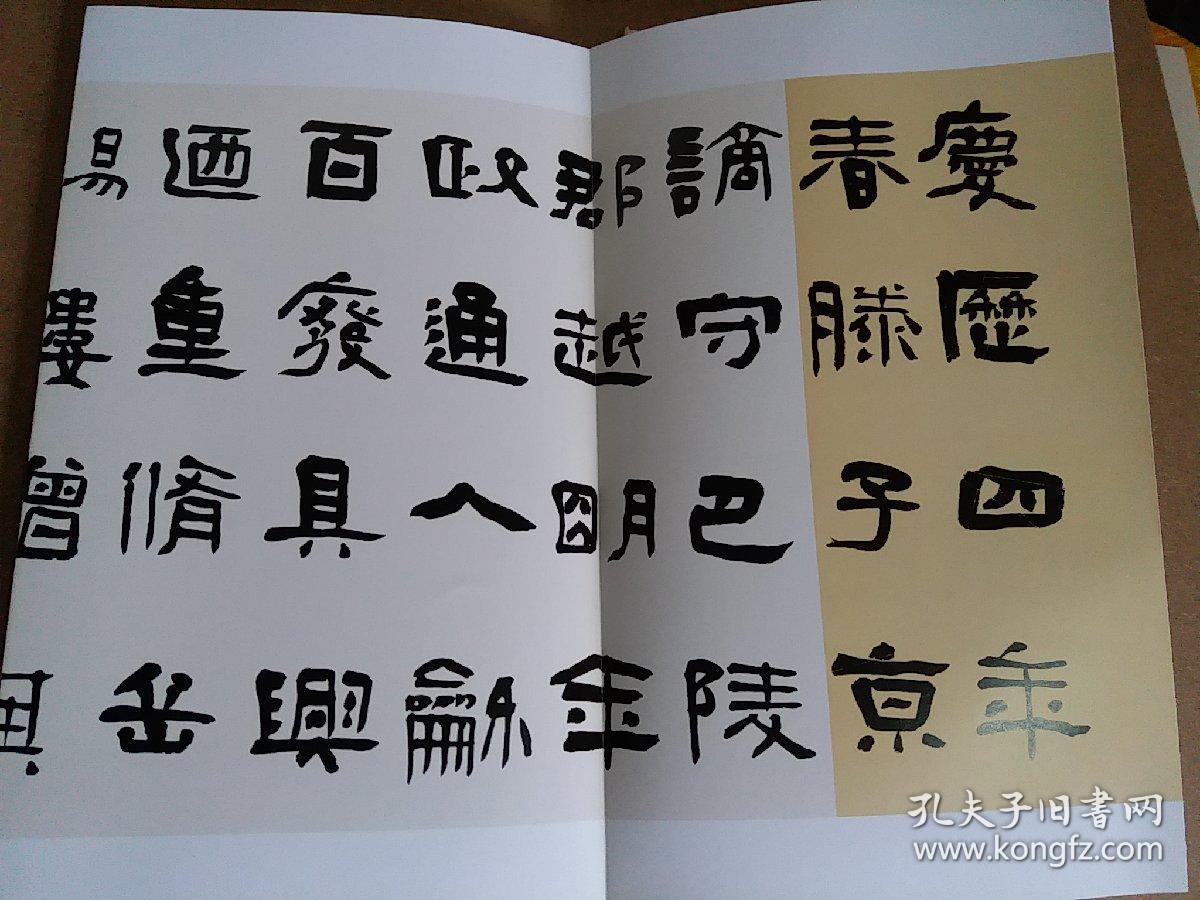 慶歷四年
春滕子京
謫守巴陵
郡越朙年
政通人龢
百廢具興
迺重脩岳
陽樓增其
孔夫子旧書网
www.kongfz.com